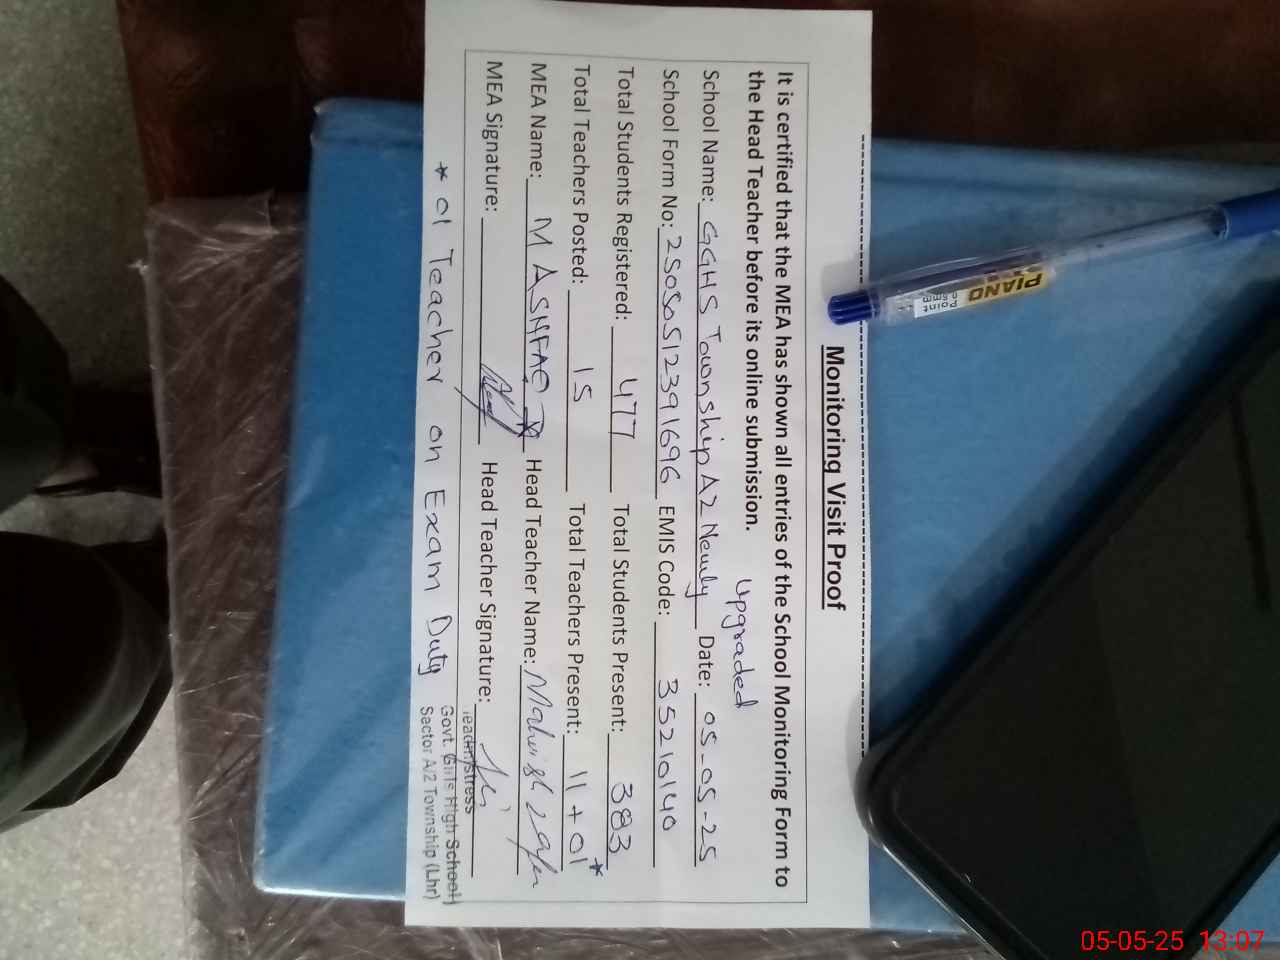 Monitoring Visit Proof
It is certified that the MEA has shown all entries of the School Monitoring Form to
the Head Teacher before its online submission.
upgraded
School Name: GGHS Township A2 Newly Date: 05-05-25
School Form No: 25050512391696 EMIS Code: 35210140
Total Students Registered: 477 Total Students Present: 383
Total Teachers Posted: 15 Total Teachers Present: 11 + 01*
MEA Name: M ASHFAQ Head Teacher Name: Mahwish
MEA Signature: Head Teacher Signature:
* 01 Teacher on Exam Duty
Headmystress
Govt. Girls High School
Sector A/2 Township (Lhr)
PIANO
Point
05-05-25 13:07